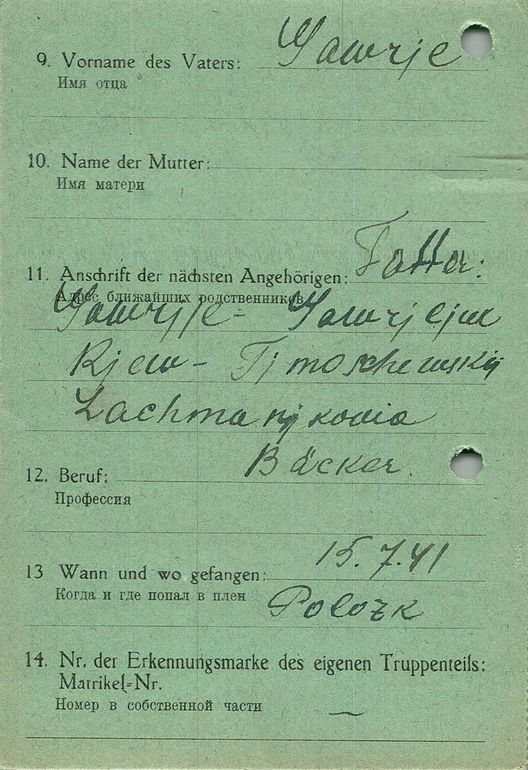 9. Vorname des Vaters: Gawrje
Имя отца
10. Name der Mutter:
Имя матери
11. Anschrift der nächsten Angehörigen: Fatter:
Адрес ближайших родственников
Gawrjje - Gawrjejin
Kjew - Tjmoschewskij
Lachmanjkowia
12. Beruf: Bäcker.
Профессия
13 Wann und wo gefangen: 15.7.41
Когда и где попал в плен Polozk
14. Nr. der Erkennungsmarke des eigenen Truppenteils:
Matrikel-Nr.
Номер в собственной части —